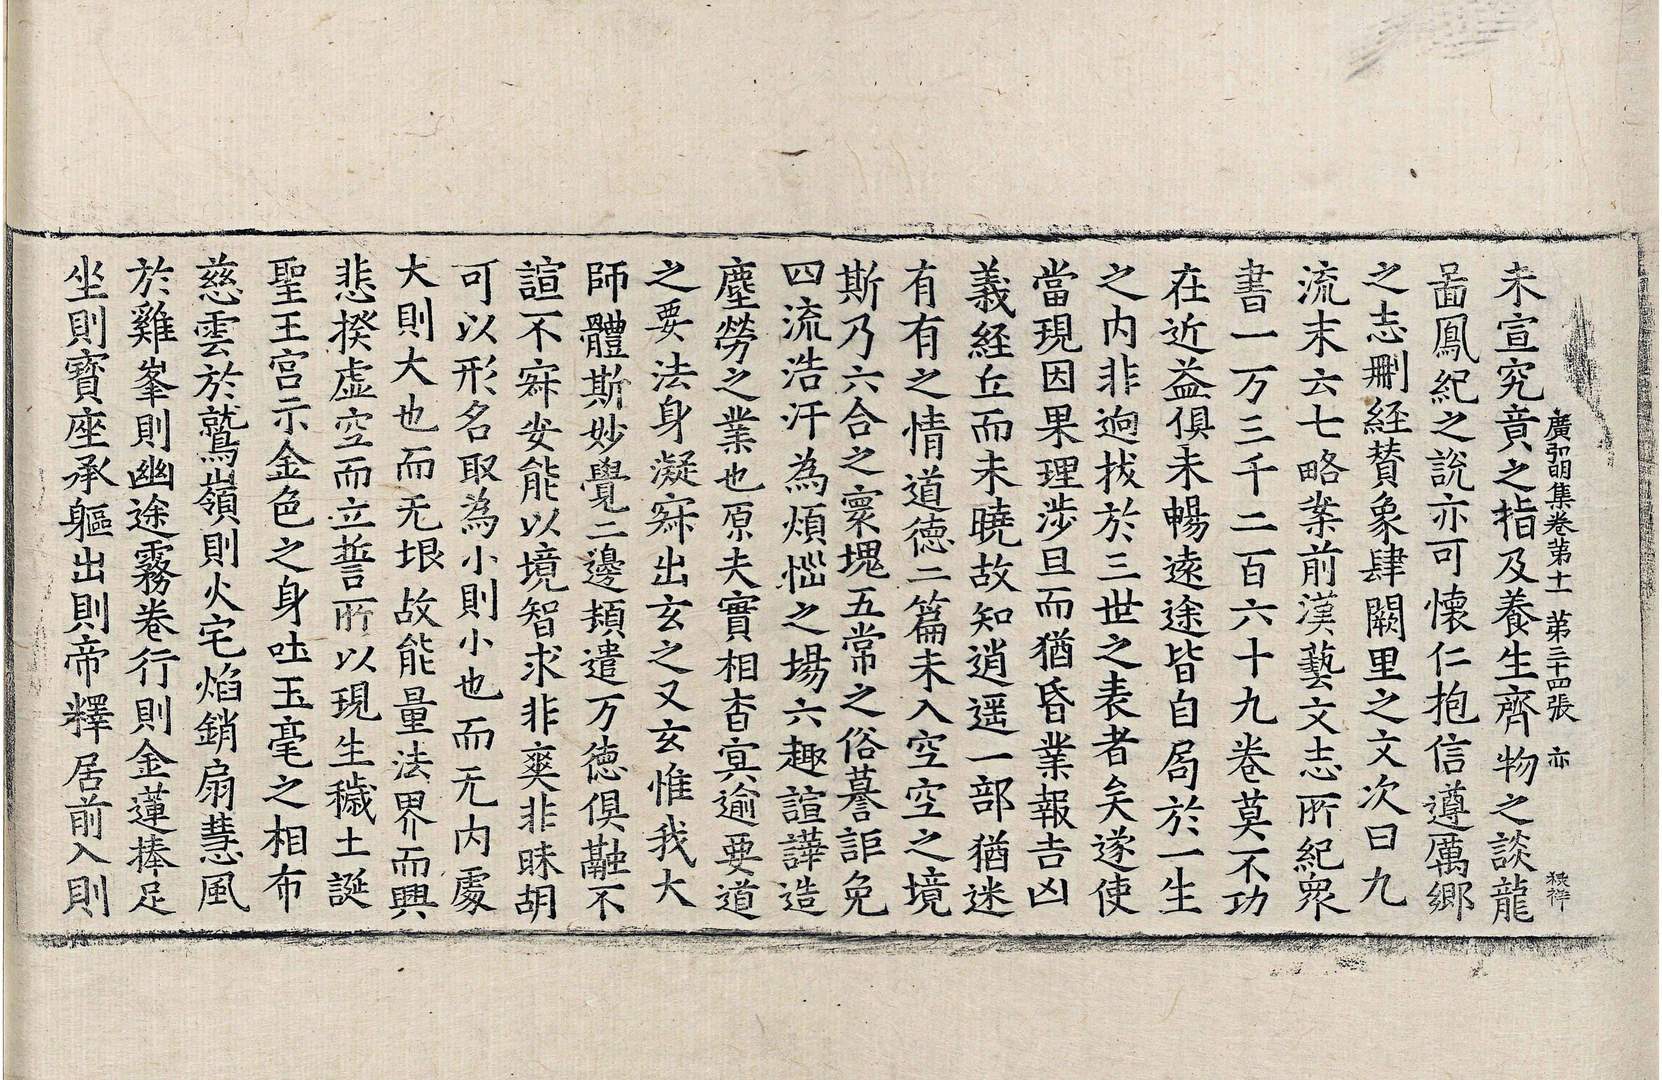 廣弘明集卷第十一 第三十四張 亦
未宣究竟之指及養生齊物之談龍
啚鳳紀之說亦可懷仁抱信遵厲鄉
之志刪經賛象肆闕里之文次曰九
流末云六七略案前漢藝文志所紀衆
書一万三千二百六十九卷莫不功
在近益俱未暢遠途皆自局於一生
之内非逈拔於三世之表者矣遂使
當現因果理涉旦而猶昏業報吉凶
義經丘而未曉故知逍遥一部猶迷
有有之情道德二篇未入空空之境
斯乃六合之寰塊五常之俗謩詎免
四流浩汗為煩惱之場六趣諠譁造
塵勞之業也原夫實相杳冥逾要道
之要法身凝寂出玄之又玄惟我大
師體斯妙覺二邊頪遣万德俱融不
諠不寂安能以境智求非爽非昧胡
可以形名取為小則小也而无内處
大則大也而无垠故能量法界而興
悲揆虚空而立誓所以現生穢土誕
聖王宮示金色之身吐玉毫之相布
慈雲於鷲嶺則火宅焰銷扇慧風
於雞峯則幽途霧卷行則金蓮捧足
坐則寶座承軀出則帝釋居前入則